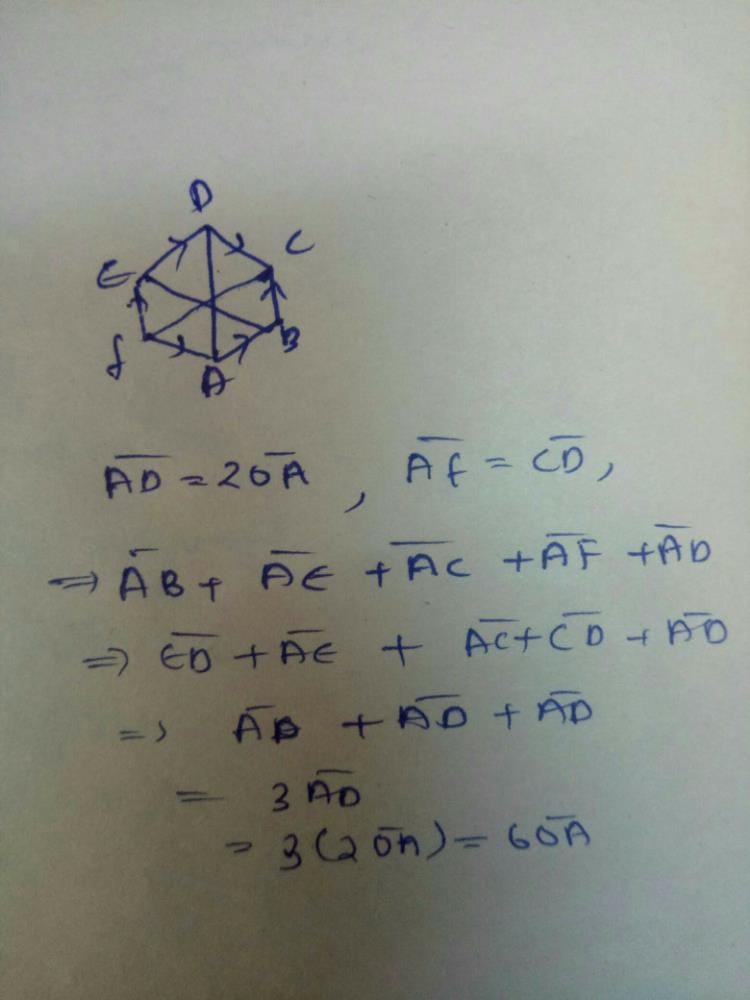 D
C
E
f
B
A
A̅D̅ = 2O̅A̅ , A̅f̅ = C̅D̅,
⇒ A̅B̅ + A̅E̅ + A̅C̅ + A̅F̅ + A̅D̅
⇒ E̅D̅ + A̅E̅ + A̅C̅ + C̅D̅ + A̅D̅
⇒ A̅D̅ + A̅D̅ + A̅D̅
= 3 A̅D̅
= 3(2O̅A̅) = 6O̅A̅